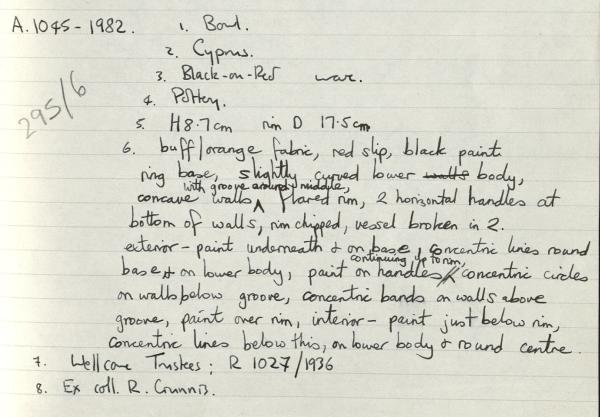 A.1045-1982.
1. Bowl.
2. Cyprus.
3. Black-on-Red ware.
4. Pottery.
295/6
5. H 8.7cm rim D 17.5cm
6. buff/orange fabric, red slip, black paint
ring base, slightly curved lower walls body,
with groove around middle,
concave walls ^ flared rim, 2 horizontal handles at
bottom of walls, rim chipped, vessel broken in 2.
exterior - paint underneath & on base, concentric lines round
continuing up to rim,
base & on lower body, paint on handles ^ concentric circles
on walls below groove, concentric bands on walls above
groove, paint over rim, interior - paint just below rim,
concentric lines below this, on lower body & round centre.
7. Wellcome Trustees; R 1027/1936
8. Ex coll. R. Gunnis.